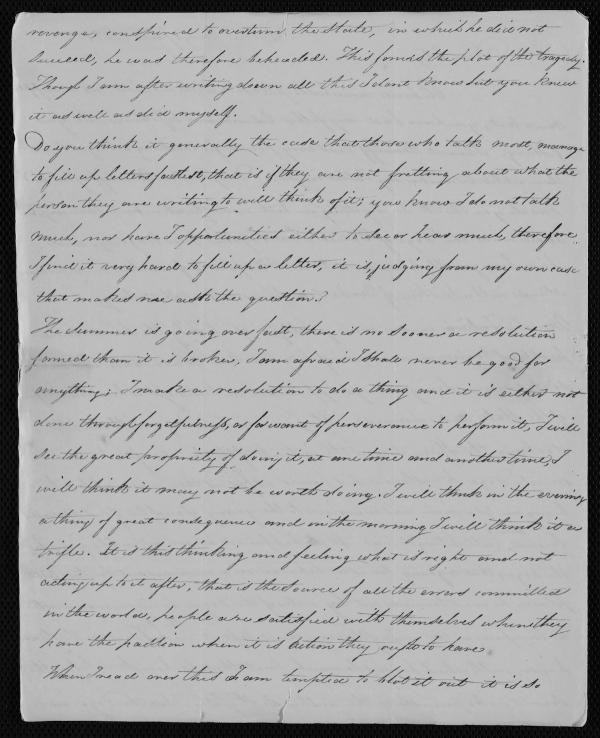 revenge, conspired to overturn the State, in which he did not
succeed, he was therefore beheaded. This forms the plot of the tragedy.
Though I am after writing down all this I dont know but you knew
it as well as did myself.
Do you think it generally the case that those who talk most, manage
to fill up letters fastest, that is if they are not fretting about what the
person they are writing to will think of it; you know I do not talk
much, nor have I opportunities either to see or hear much, therefore
I find it very hard to fill up a letter, it is, judging from my own case
that makes me ask the question?
The summer is going over fast, there is no sooner a resolution
formed than it is broken, I am afraid I shall never be good for
anything; I make a resolution to do a thing and it is either not
done through forgetfulness, or for want of perseverance to perform it, I will
see the great propriety of doing it, at one time and another time, I
will think it may not be worth doing. I will think in the evening
a thing of great consequence and in the morning I will think it a
trifle. It is this thinking and feeling what is right and not
acting up to it after, that is the source of all the errors committed
in the world, people are satisfied with themselves when they
have the passion when it is action they ought to have
When I read over this I am tempted to blot it out it is so